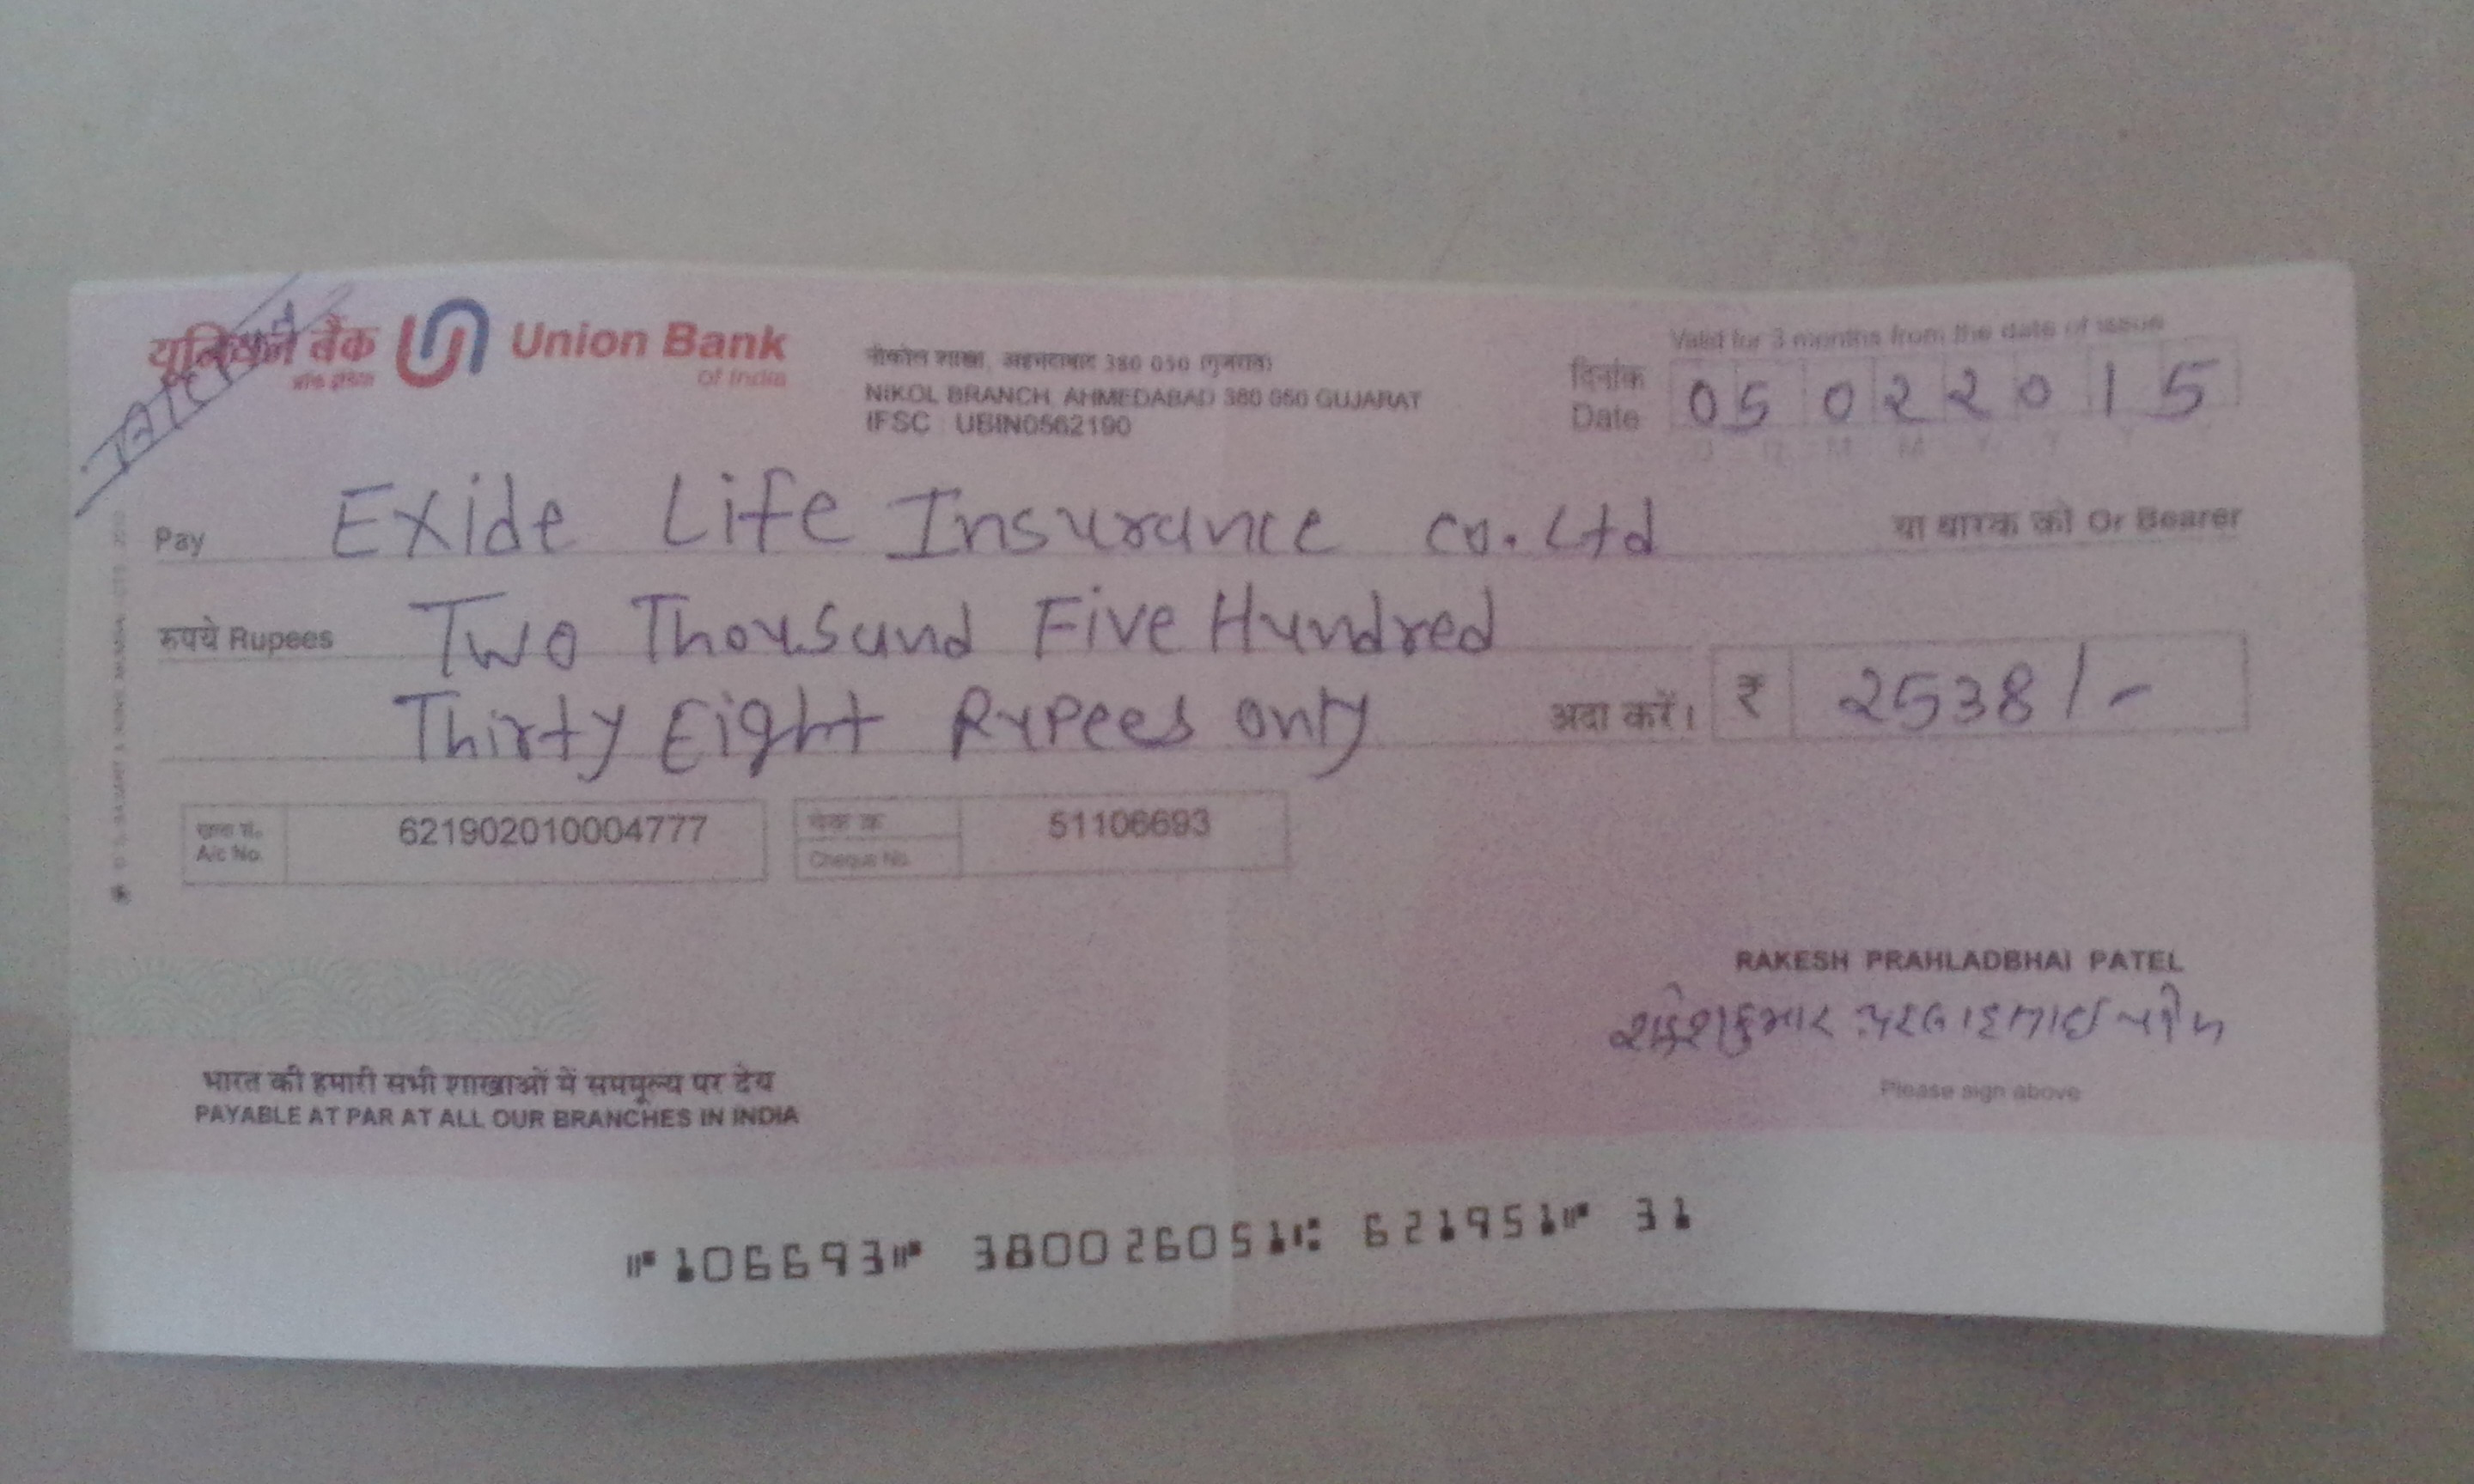 यूनियन बैंक Union Bank
ऑफ इंडिया of India
नीकोल शाखा, अहमदाबाद 380 050 (गुजरात)
NIKOL BRANCH, AHMEDABAD 380 050 GUJARAT
IFSC : UBIN0562190
Valid for 3 months from the date of issue
दिनांक
Date 05022015
D D M M Y Y Y Y
Pay Exide Life Insurance co. Ltd या धारक को Or Bearer
रुपये Rupees Two Thousand Five Hundred
Thirty Eight Rupees only अदा करें। ₹ 2538/-
खाता सं. A/c No. 621902010004777
चेक क्र. Cheque No. 51106693
RAKESH PRAHLADBHAI PATEL
Please sign above
भारत की हमारी सभी शाखाओं में सममूल्य पर देय
PAYABLE AT PAR AT ALL OUR BRANCHES IN INDIA
⑈106693⑈ 380026051⑆ 621951⑈ 31